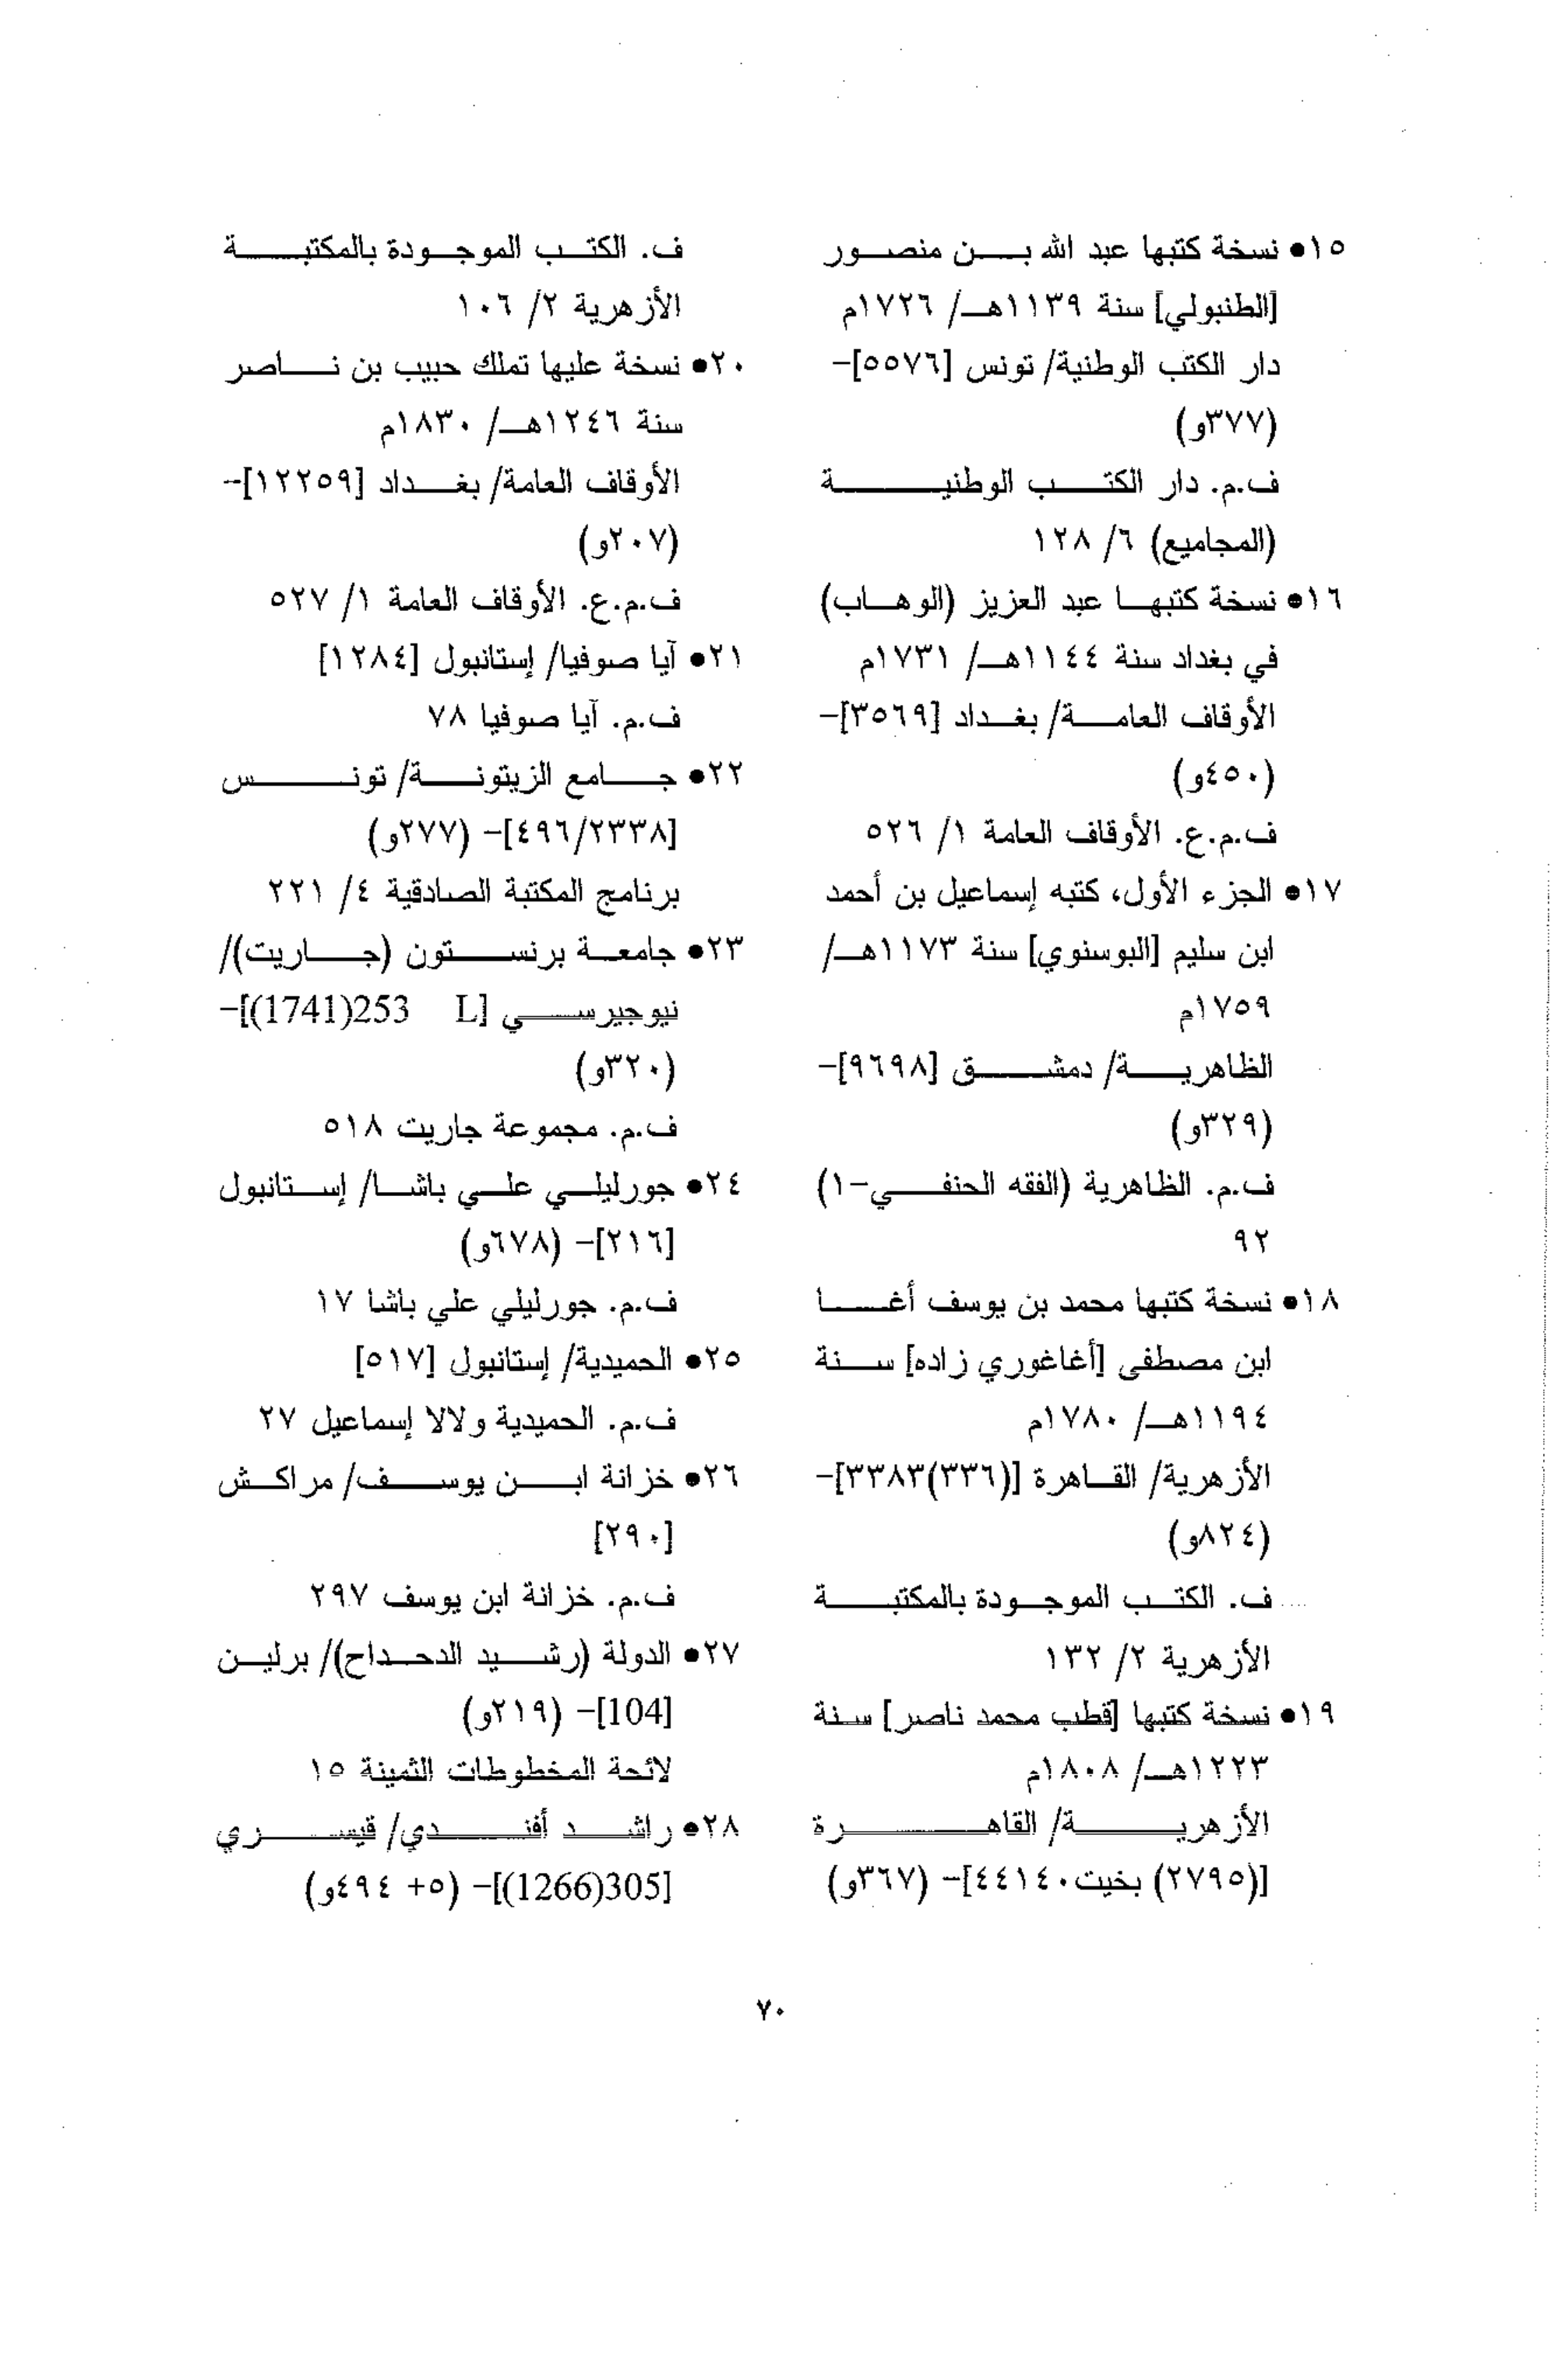 ١٥● نسخة كتبها عبد الله بن منصور
[الطنبولي] سنة ١١٣٩هـ/ ١٧٢٦م
دار الكتب الوطنية/ تونس [٥٥٧٦]-
(٣٧٧و)
ف.م. دار الكتب الوطنية
(المجاميع) ٦/ ١٢٨
١٦● نسخة كتبها عبد العزيز (الوهاب)
في بغداد سنة ١١٤٤هـ/ ١٧٣١م
الأوقاف العامة/ بغداد [٣٥٦٩]-
(٤٥٠و)
ف.م.ع. الأوقاف العامة ١/ ٥٢٦
١٧● الجزء الأول، كتبه إسماعيل بن أحمد
ابن سليم [البوسنوي] سنة ١١٧٣هـ/
١٧٥٩م
الظاهرية/ دمشق [٩٦٩٨]-
(٣٢٩و)
ف.م. الظاهرية (الفقه الحنفي-١)
٩٢
١٨● نسخة كتبها محمد بن يوسف أغا
ابن مصطفى [أغاغوري زاده] سنة
١١٩٤هـ/ ١٧٨٠م
الأزهرية/ القاهرة [(٣٣٦)٣٣٨٣]-
(٨٢٤و)
ف. الكتب الموجودة بالمكتبة
الأزهرية ٢/ ١٣٢
١٩● نسخة كتبها [قطب محمد ناصر] سنة
١٢٢٣هـ/ ١٨٠٨م
الأزهرية/ القاهرة
[(٢٧٩٥) بخيت٤٤١٤٠]- (٣٦٧و)
ف. الكتب الموجودة بالمكتبة
الأزهرية ٢/ ١٠٦
٢٠● نسخة عليها تملك حبيب بن ناصر
سنة ١٢٤٦هـ/ ١٨٣٠م
الأوقاف العامة/ بغداد [١٢٢٥٩]-
(٢٠٧و)
ف.م.ع. الأوقاف العامة ١/ ٥٢٧
٢١● آيا صوفيا/ إستانبول [١٢٨٤]
ف.م. آيا صوفيا ٧٨
٢٢● جامع الزيتونة/ تونس
[٤٩٦/٢٣٣٨]- (٢٧٧و)
برنامج المكتبة الصادقية ٤/ ٢٢١
٢٣● جامعة برنستون (جاريت)/
نيوجيرسي [L 253(1741)]-
(٣٢٠و)
ف.م. مجموعة جاريت ٥١٨
٢٤● جورليلي علي باشا/ إستانبول
[٢١٦]- (٦٧٨و)
ف.م. جورليلي علي باشا ١٧
٢٥● الحميدية/ إستانبول [٥١٧]
ف.م. الحميدية ولالا إسماعيل ٢٧
٢٦● خزانة ابن يوسف/ مراكش
[٢٩٠]
ف.م. خزانة ابن يوسف ٢٩٧
٢٧● الدولة (رشيد الدحداح)/ برلين
[104]- (٢١٩و)
لائحة المخطوطات الثمينة ١٥
٢٨● راشد أفندي/ قيسري
[305(1266)]- (٥+ ٤٩٤و)
٧٠